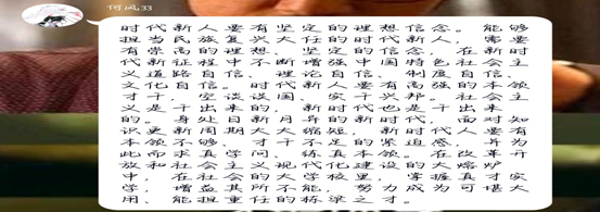 何风33
时代新人要有坚定的理想信念。能够
担当民族复兴大任的时代新人，需要
有崇高的理想、坚定的信念，在新时
代新征程中不断增强中国特色社会主
义道路自信、理论自信、制度自信、
文化自信。时代新人要有高强的本领
才干，空谈误国，实干兴邦。社会主
义是干出来的，新时代也是干出来
的。身处日新月异的新时代，面对知
识更新周期大大缩短，新时代人要有
本领不够、才干不足的紧迫感，并为
此而求真学问、练真本领。在改革开
放和社会主义现代化建设的大熔炉
中，在社会的大学校里，掌握真才实
学，增益其所不能，努力成为可堪大
用、能担重任的栋梁之才。